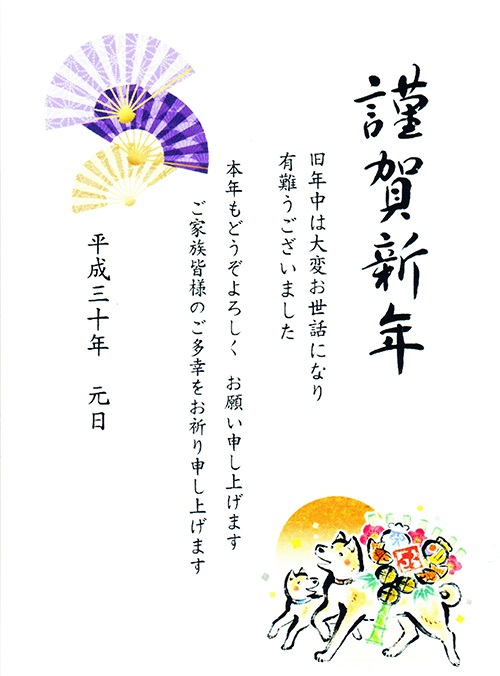 謹賀新年
旧年中は大変お世話になり
有難うございました
本年もどうぞよろしく　お願い申し上げます
ご家族皆様のご多幸をお祈り申し上げます
平成三十年　元日